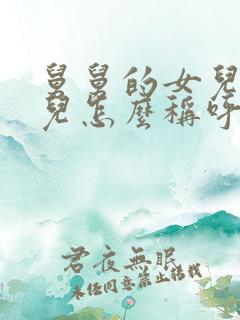 舅舅的女兒
兒怎麼稱呼
君夜無眠
未经同意禁止转载